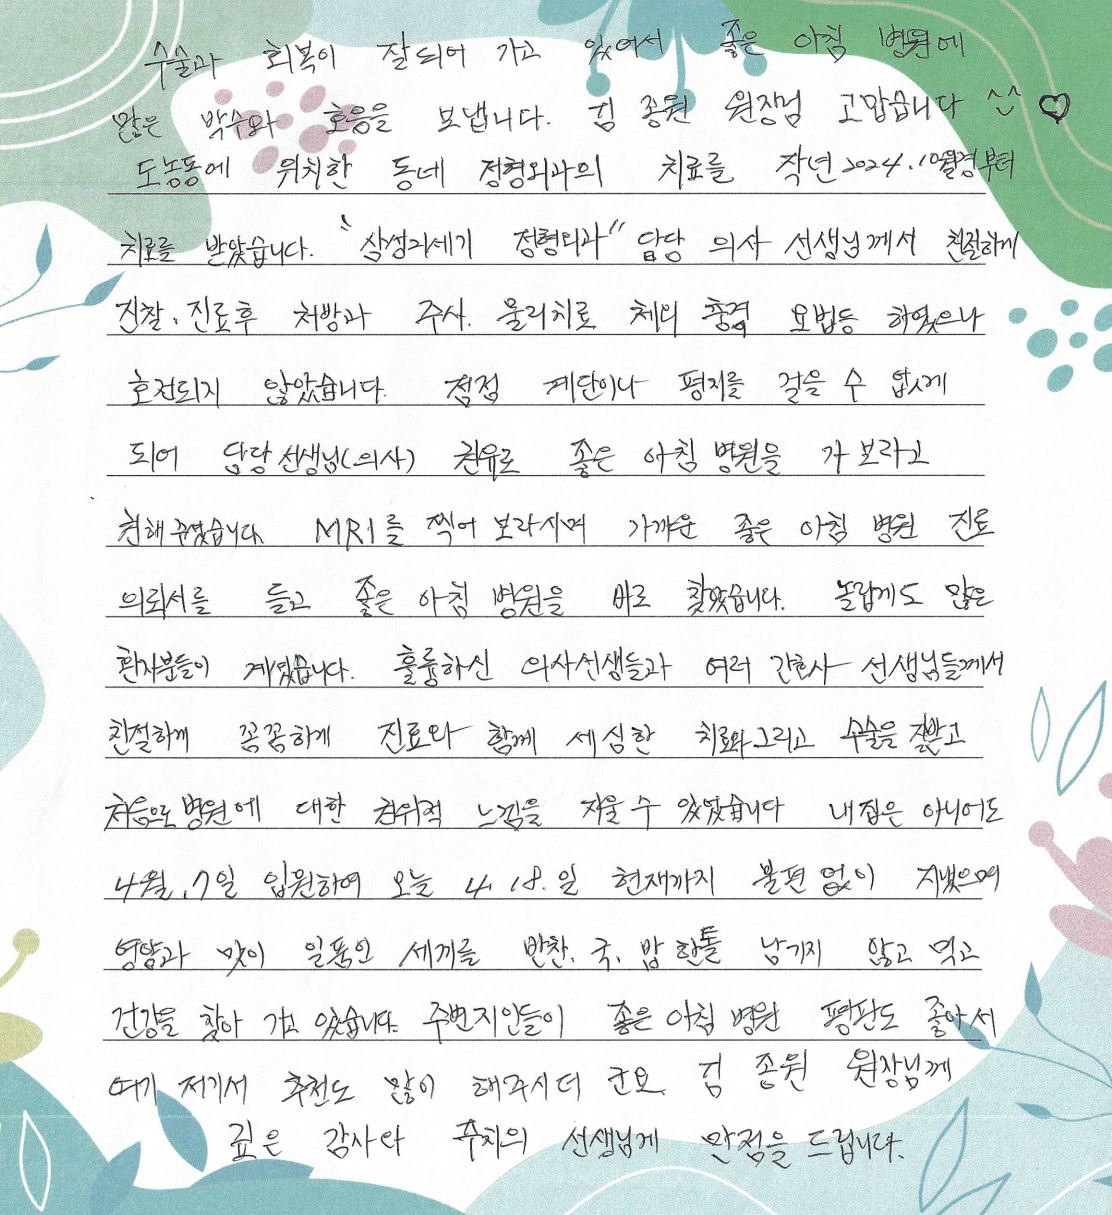 수술과 회복이 잘되어 가고 있어서 좋은 아침 병원에
많은 박수와 호응을 보냅니다. 김 종원 원장님 고맙습니다 ^^ ♡
도농동에 위치한 동네 정형외과의 치료를 작년 2024.10월경부터
치료를 받았습니다. "삼성리세기 정형외과" 담당 의사 선생님께서 친절하게
진찰, 진료후 처방과 주사. 물리치로 체외 충격 요법등 하였으나
호전되지 않았습니다. 점점 계단이나 평지를 걸을 수 없게
되어 담당 선생님(의사) 권유로 좋은 아침 병원을 가 보라고
권해 주셨습니다 MRI를 찍어 보라시며 가까운 좋은 아침 병원 진료
의뢰서를 들고 좋은 아침 병원을 바로 찾았습니다. 놀랍게도 많은
환자분들이 계셨습니다. 훌륭하신 의사선생들과 여러 간호사 선생님들께서
친절하게 꼼꼼하게 진료와 함께 세심한 치료와 그리고 수술을 잘받고
처음으로 병원에 대한 권위적 느낌을 지울 수 있었습니다 내집은 아니어도
4월.7일 입원하여 오늘 4.18.일 현재까지 불편 없이 지냈으며
영양과 맛이 일품인 세끼를 반찬. 국. 밥 한톨 남기지 않고 먹고
건강을 찾아 가고 있습니다. 주변지인들이 좋은 아침 병원 평판도 좋아서
여기 저기서 추천도 많이 해주시더 군요. 김 종원 원장님께
깊은 감사와 주치의 선생님게 만점을 드립니다.